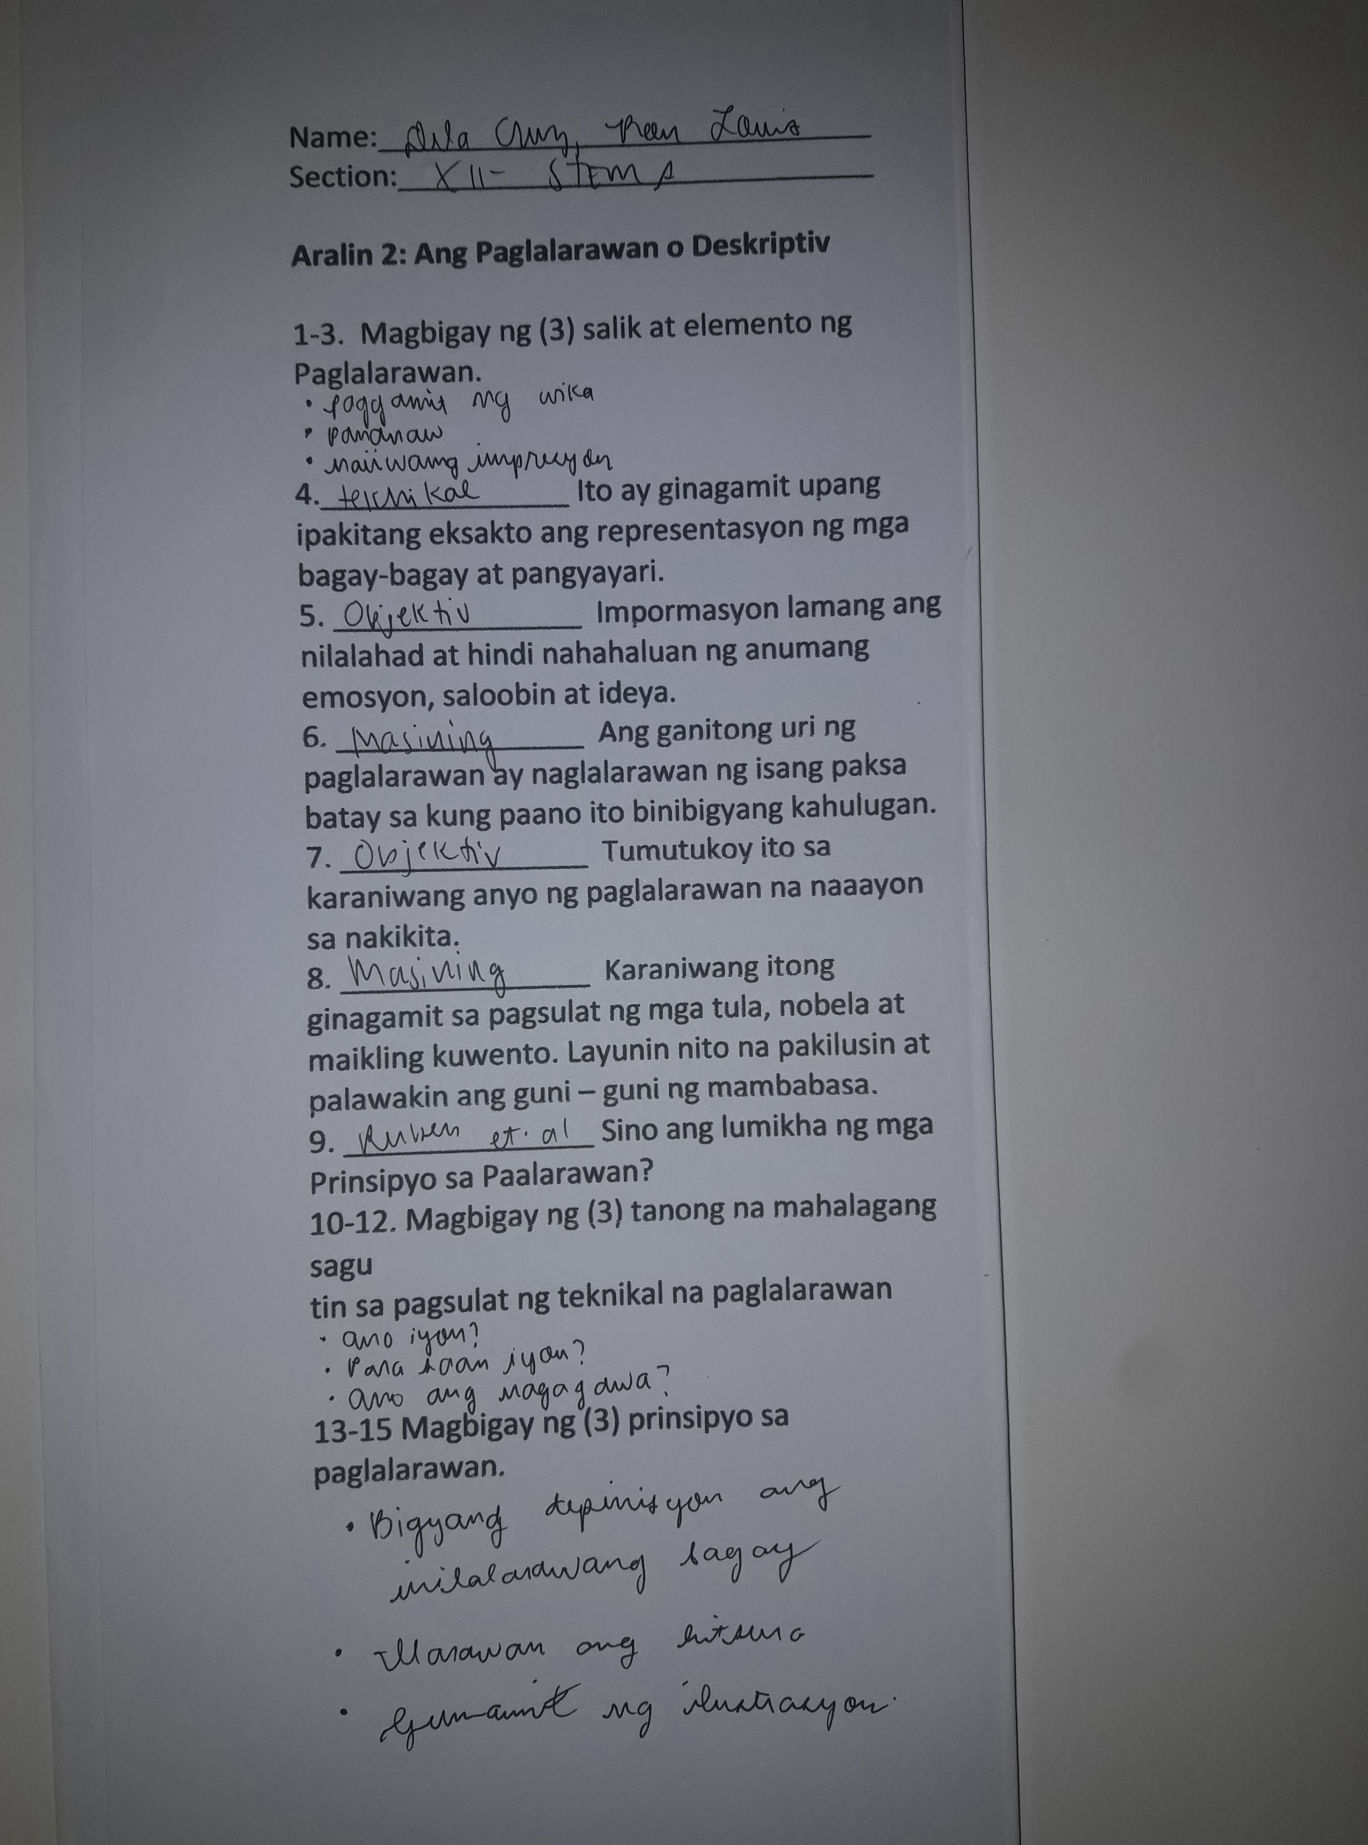 Name: Dela Cruz, Reen Louis
Section: XII- STEM A
Aralin 2: Ang Paglalarawan o Deskriptiv
1-3. Magbigay ng (3) salik at elemento ng
Paglalarawan.
• paggamit ng wika
• pananaw
• naiiwang impresyon
4. teknikal Ito ay ginagamit upang
ipakitang eksakto ang representasyon ng mga
bagay-bagay at pangyayari.
5. Objektiv Impormasyon lamang ang
nilalahad at hindi nahahaluan ng anumang
emosyon, saloobin at ideya.
6. Masining Ang ganitong uri ng
paglalarawan ay naglalarawan ng isang paksa
batay sa kung paano ito binibigyang kahulugan.
7. Objektiv Tumutukoy ito sa
karaniwang anyo ng paglalarawan na naaayon
sa nakikita.
8. Masining Karaniwang itong
ginagamit sa pagsulat ng mga tula, nobela at
maikling kuwento. Layunin nito na pakilusin at
palawakin ang guni – guni ng mambabasa.
9. Ruben et. al Sino ang lumikha ng mga
Prinsipyo sa Paalarawan?
10-12. Magbigay ng (3) tanong na mahalagang
sagu
tin sa pagsulat ng teknikal na paglalarawan
• ano iyon?
• Para saan iyon?
• ano ang nagagawa?
13-15 Magbigay ng (3) prinsipyo sa
paglalarawan.
• Bigyang depinisyon ang
inilalarawang bagay
• Ilarawan ang hitsura
• Gumamit ng ilustrasyon.